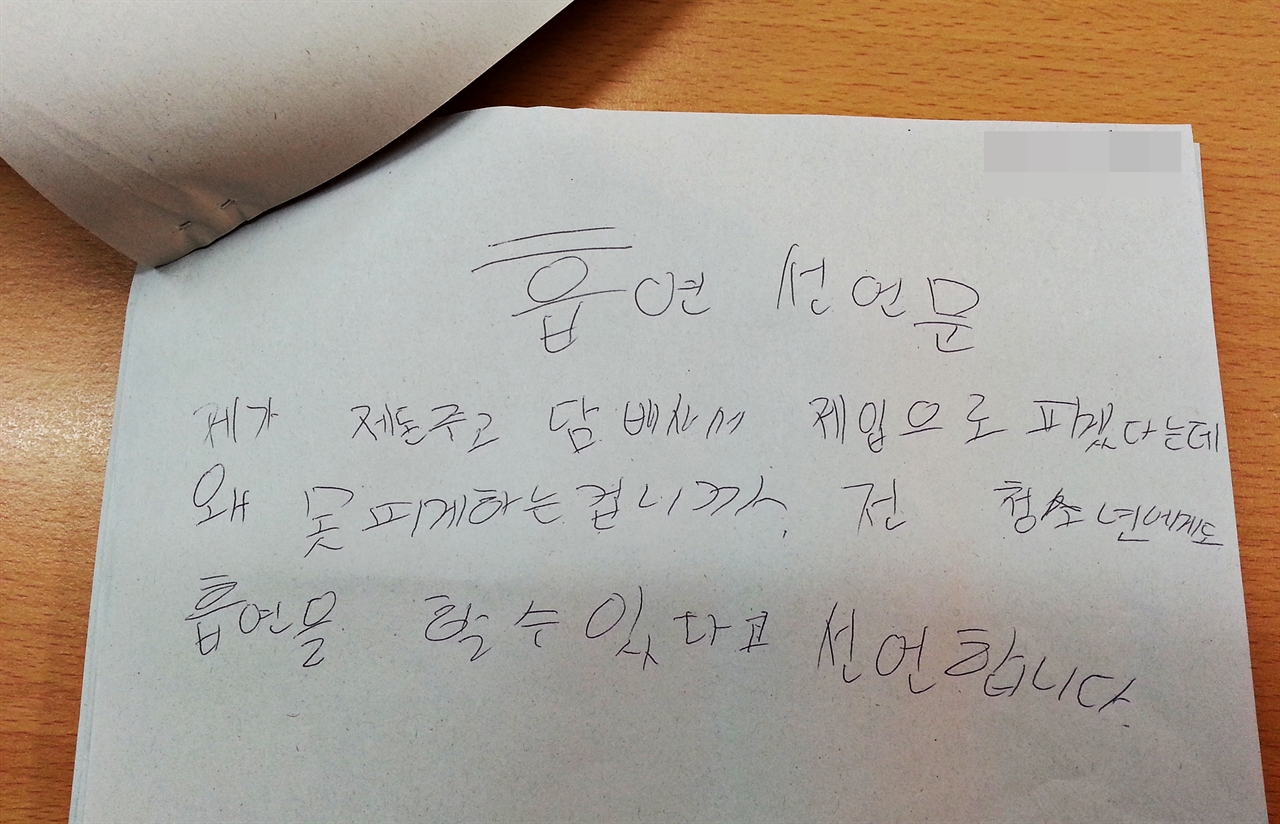 흡연 선언문
제가 제돈주고 담배사서 제입으로 피겠다는데
왜 못피게하는겁니까. 전 청소년에게도
흡연물 할수있다고 선언합니다.